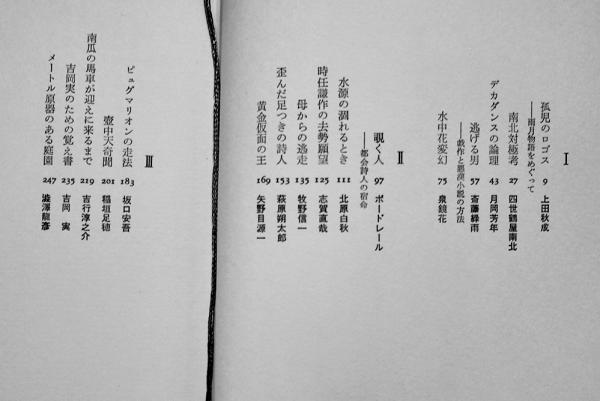 I
孤児のロゴス 9 上田秋成
――雨月物語をめぐって
南北対極考 27 四世鶴屋南北
デカダンスの論理 43 月岡芳年
逃げる男 57 斎藤緑雨
――戯作と悪漢小説の方法
水中花変幻 75 泉鏡花
II
覗く人 97 ボードレール
――都会詩人の宿命
水源の涸れるとき 111 北原白秋
時任謙作の去勢願望 125 志賀直哉
母からの逃走 135 牧野信一
歪んだ足つきの詩人 153 萩原朔太郎
黄金仮面の王 169 矢野目源一
III
ピュグマリオンの走法 183 坂口安吾
壺中天奇聞 201 稲垣足穂
南瓜の馬車が迎えに来るまで 219 吉行淳之介
吉岡実のための覚え書 235 吉岡 実
メートル原器のある庭園 247 澁澤龍彥